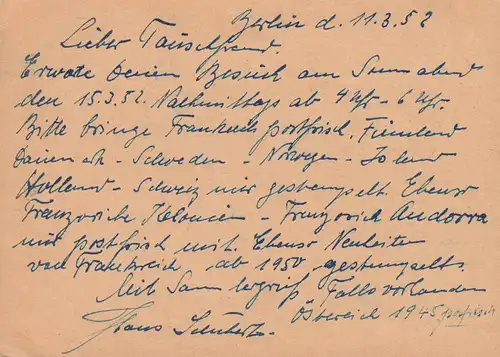 Berlin d. 11.3.52
Lieber Tauschfreund.
Erwarte Deinen Besuch am Sonnabend
den 15.3.52. Nachmittags ab 4 Uhr - 6 Uhr.
Bitte bringe Frankreich postfrisch, Finnland
Dänemark - Schweden - Norwegen - Island
Holland - Schweiz nur gestempelt. Ebenso
Französische Kolonien - Französich Andorra
nur postfrisch mit. Ebenso Neuheiten
von Frankreich ab 1950 gestempelt.
Mit Sammlergruß Falls vorhanden
Hans Schubert Östereich 1945 postfrisch